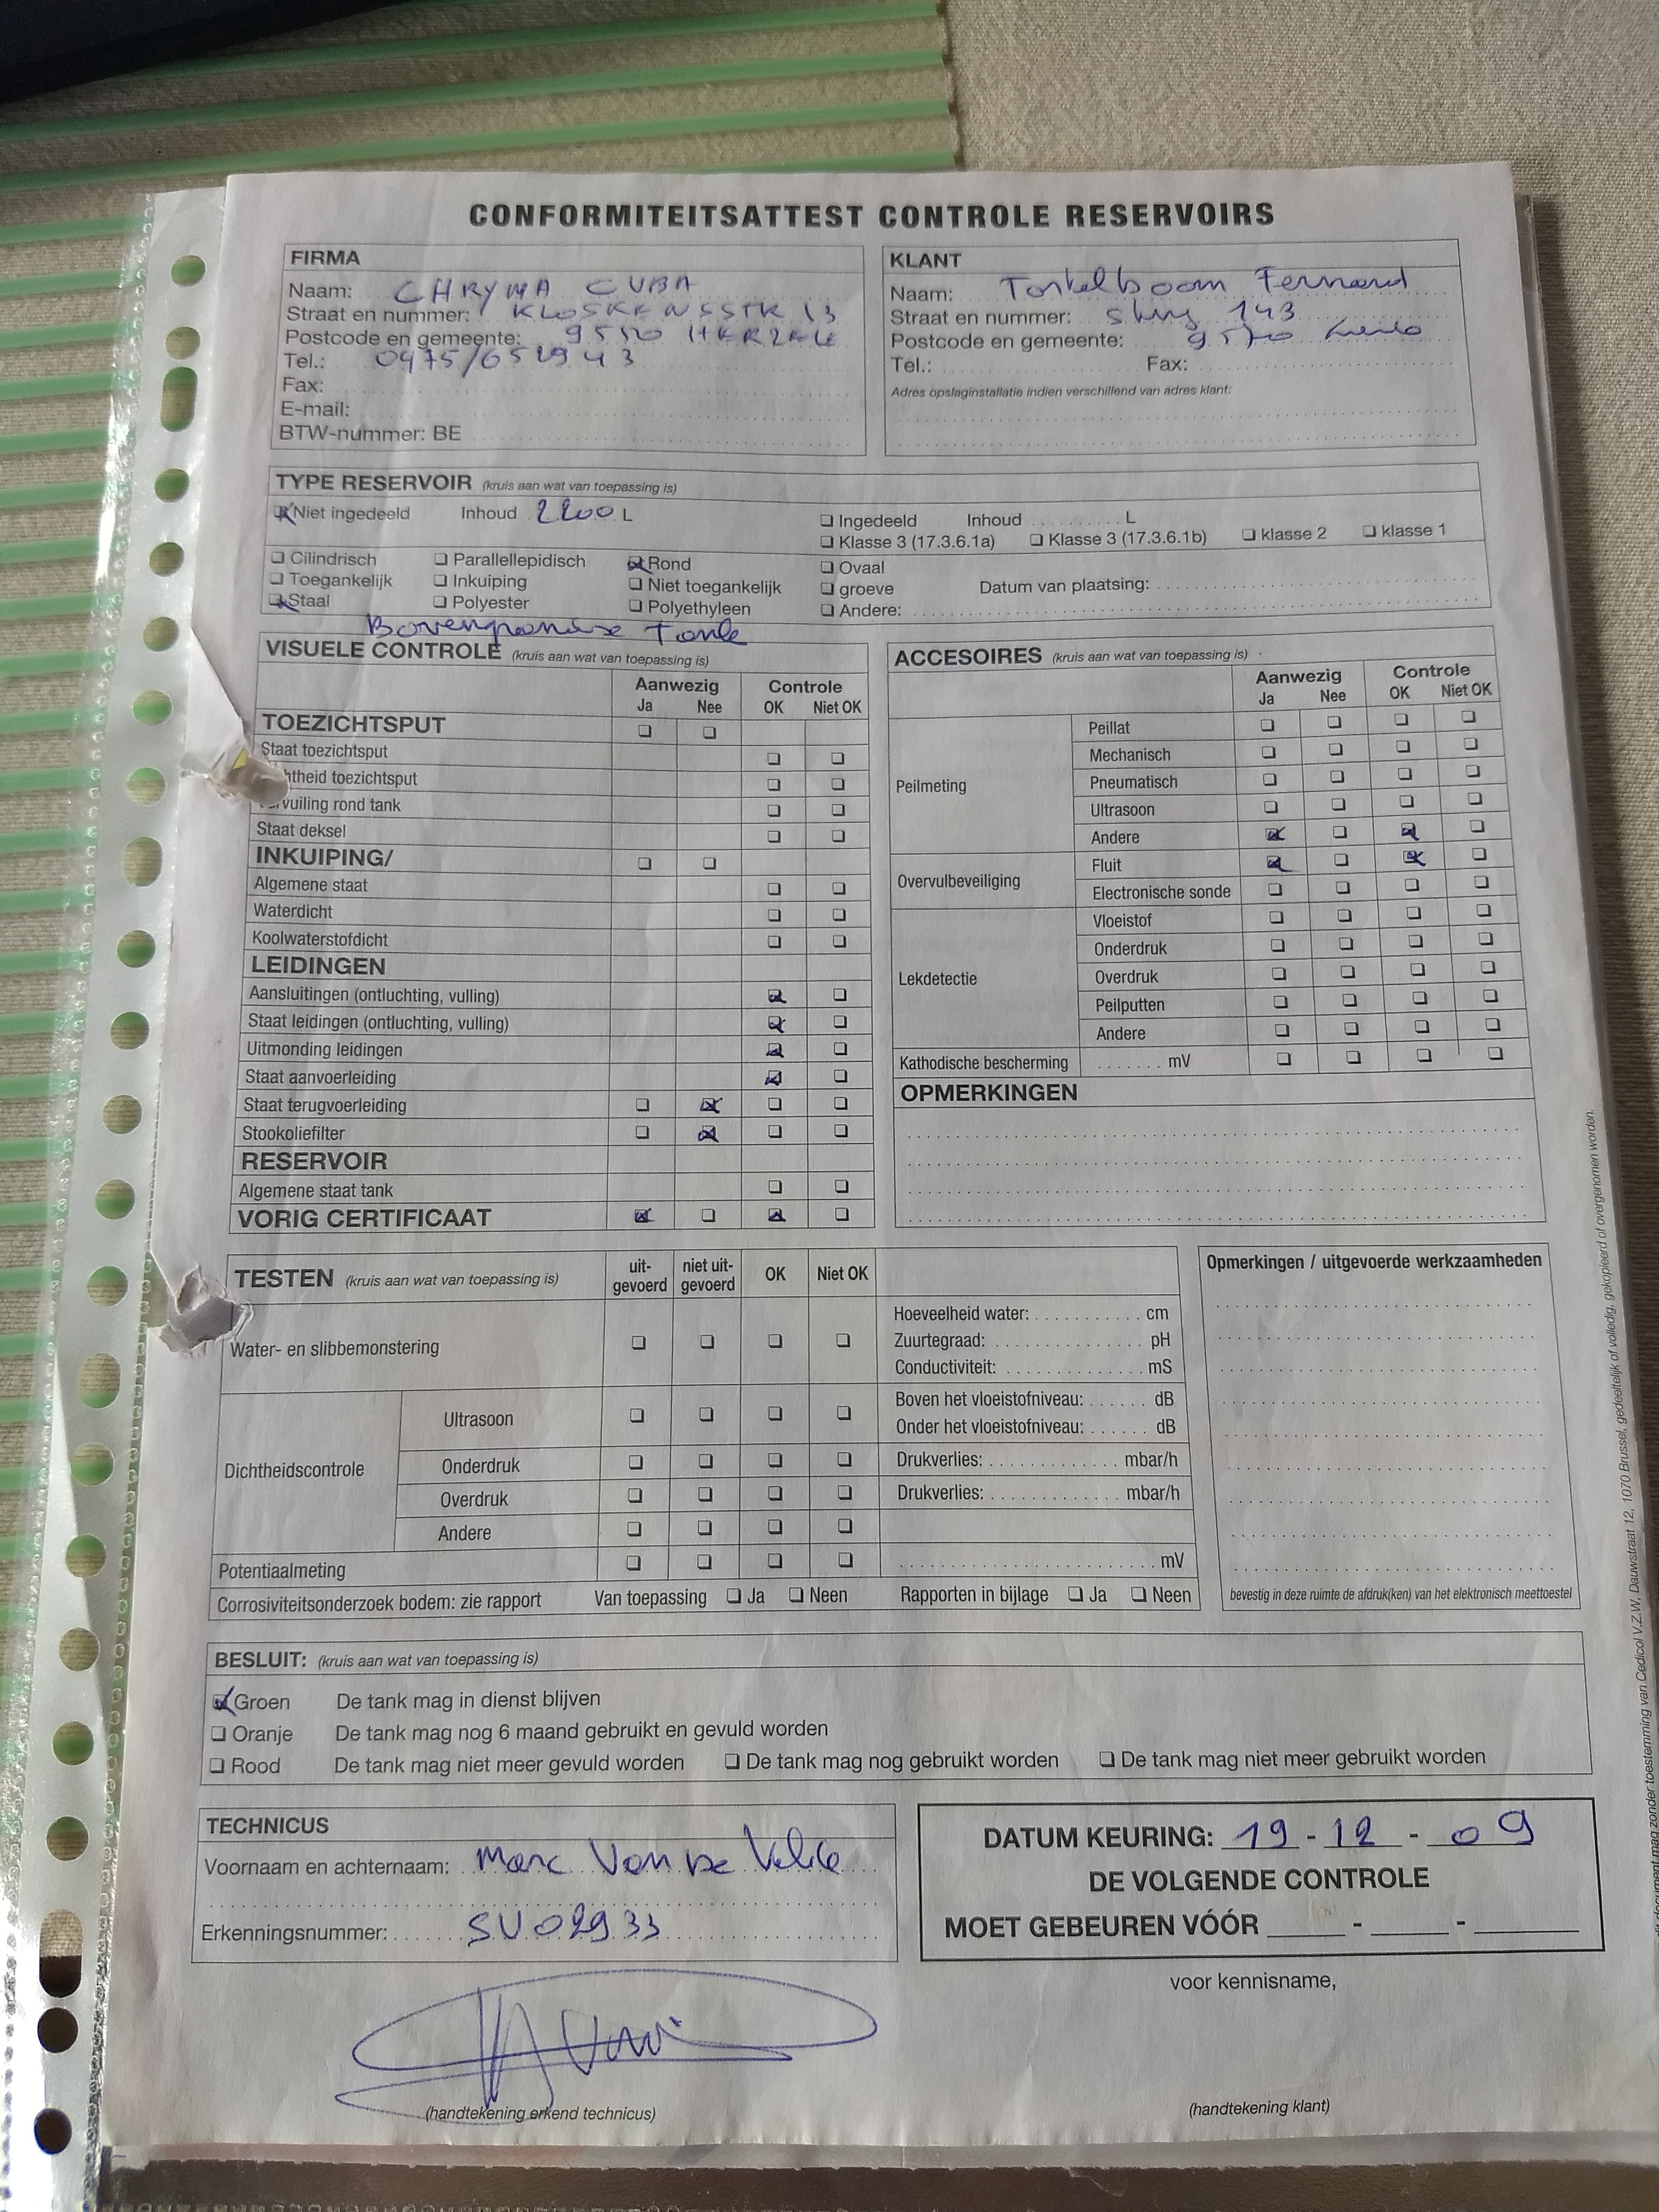 CONFORMITEITSATTEST CONTROLE RESERVOIRS
FIRMA
Naam: CHRYMA CUBA
Straat en nummer: KLOSKENSSTR 13
Postcode en gemeente: 9550 HERZELE
Tel.: 0475/652943
Fax:
E-mail:
BTW-nummer: BE
KLANT
Naam: Fernand
Straat en nummer: 143
Postcode en gemeente: 9570
Tel.: Fax:
Adres opslaginstallatie indien verschillend van adres klant:
TYPE RESERVOIR (kruis aan wat van toepassing is)
Niet ingedeeld Inhoud 2200 L
Ingedeeld Inhoud .......... L
Klasse 3 (17.3.6.1a) Klasse 3 (17.3.6.1b) klasse 2 klasse 1
Cilindrisch Parallellepidisch Rond Ovaal
Toegankelijk Inkuiping Niet toegankelijk groeve Datum van plaatsing:
Staal Polyester Polyethyleen Andere:
Bovengrondse Tank
VISUELE CONTROLE (kruis aan wat van toepassing is)
Aanwezig Controle
Ja Nee OK Niet OK
TOEZICHTSPUT
Staat toezichtsput
htheid toezichtsput
vuiling rond tank
Staat deksel
INKUIPING/
Algemene staat
Waterdicht
Koolwaterstofdicht
LEIDINGEN
Aansluitingen (ontluchting, vulling)
Staat leidingen (ontluchting, vulling)
Uitmonding leidingen
Staat aanvoerleiding
Staat terugvoerleiding
Stookoliefilter
RESERVOIR
Algemene staat tank
VORIG CERTIFICAAT
ACCESOIRES (kruis aan wat van toepassing is)
Aanwezig Controle
Ja Nee OK Niet OK
Peilmeting
Peillat
Mechanisch
Pneumatisch
Ultrasoon
Andere
Overvulbeveiliging
Fluit
Electronische sonde
Lekdetectie
Vloeistof
Onderdruk
Overdruk
Peilputten
Andere
Kathodische bescherming ....... mV
OPMERKINGEN
TESTEN (kruis aan wat van toepassing is)
uit-gevoerd niet uit-gevoerd OK Niet OK
Water- en slibbemonstering
Hoeveelheid water: ........... cm
Zuurtegraad: ............... pH
Conductiviteit: ............. mS
Dichtheidscontrole
Ultrasoon
Boven het vloeistofniveau: ...... dB
Onder het vloeistofniveau: ...... dB
Onderdruk Drukverlies: ............ mbar/h
Overdruk Drukverlies: ............ mbar/h
Andere
Potentiaalmeting mV
Corrosiviteitsonderzoek bodem: zie rapport Van toepassing Ja Neen Rapporten in bijlage Ja Neen
Opmerkingen / uitgevoerde werkzaamheden
bevestig in deze ruimte de afdruk(ken) van het elektronisch meettoestel
BESLUIT: (kruis aan wat van toepassing is)
Groen De tank mag in dienst blijven
Oranje De tank mag nog 6 maand gebruikt en gevuld worden
Rood De tank mag niet meer gevuld worden De tank mag nog gebruikt worden De tank mag niet meer gebruikt worden
TECHNICUS
Voornaam en achternaam: Marc Van De Velde
Erkenningsnummer: SV02933
DATUM KEURING: 19 - 12 - 09
DE VOLGENDE CONTROLE
MOET GEBEUREN VÓÓR ____ - ____ - ____
voor kennisname,
(handtekening erkend technicus)
(handtekening klant)
document mag zonder toestemming van Cedicol V.Z.W, Dauwstraat 12, 1070 Brussel, gedeeltelijk of volledig, gekopieerd of overgenomen worden.